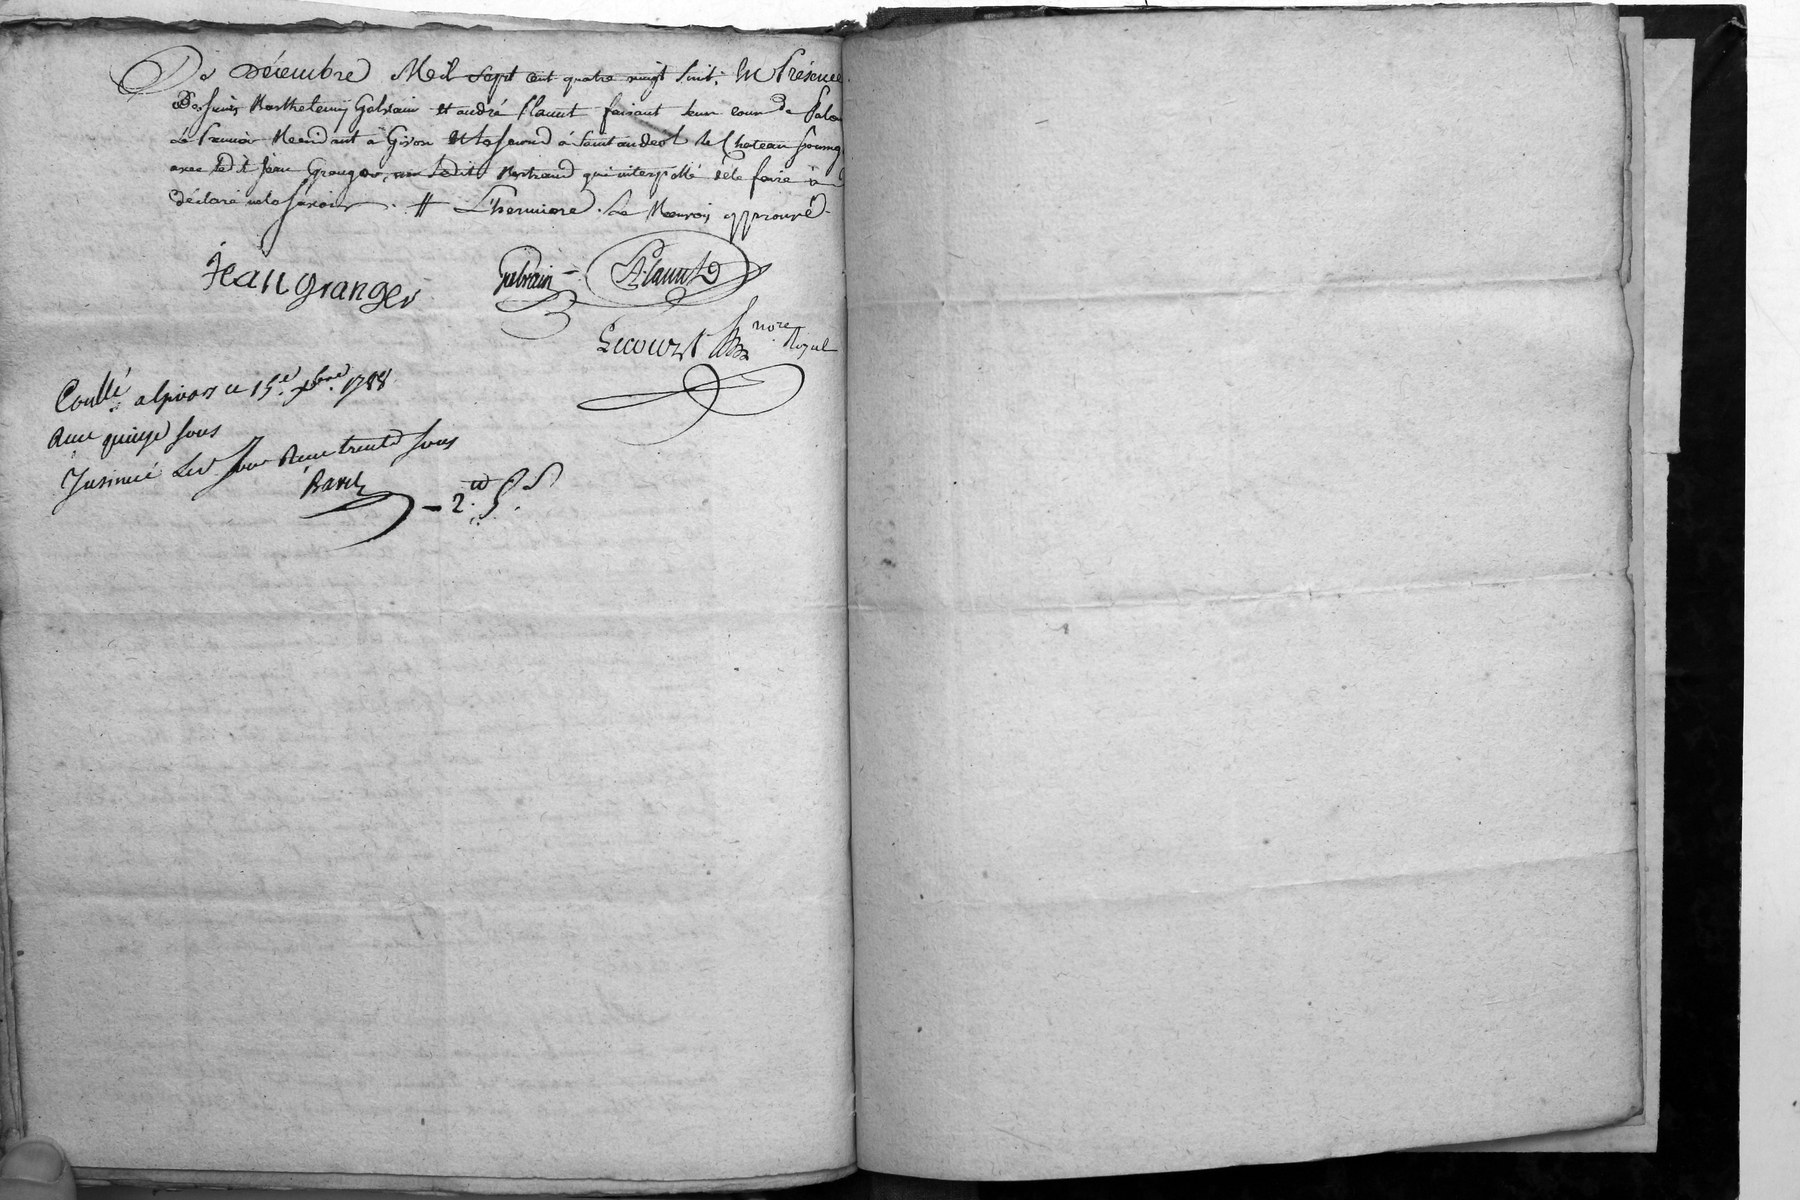 De décembre Mil Sept cent quatre vingt huit. En Présence
Des sieurs Barthelemy Galvain et andré flaunt faisant leur cour de
Le Premier Residant a Givors et le second á Saint andeol le Chateau
avec led.t Jean Granger, non Ledit Bertrand qui interpellé de le faire à
déclaré ne le savoir. # L'herminere. Le Renvoy approuvé
Jean granger
Galvain
A. flaunt
Lecourt nore Royal
Conllé a Givors ce 15.e xbre 1788
Recu quinze sous
Insinué Led Jour Recu trente sous
2.